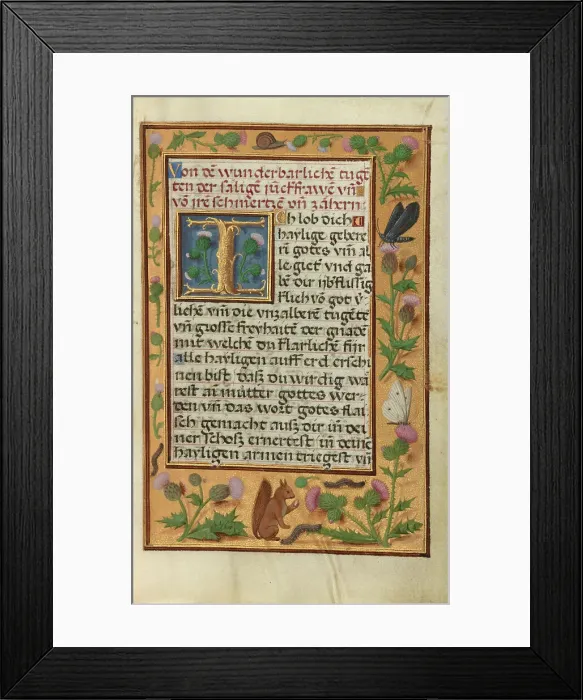 Von dē wunderbarlichē tugē
ten der saligē jūckfrawē vn̄
vō jrē schmertzē vn̄ zähern
Ich lob dich
haylige gebere
rī gotes vnn al
le gietꝰ vnd ga
bē dir ÿbflüssig
klich vō got v̓
liehē vnn die vnzalberē tugētē
vn̄ grosse freyhaitē der gnadē
mit welchē du klarlichē fúr
alle haÿligen auff erd erschi
nen bist Dasz du wirdig wa
rest ain mütter gottes wer
den vn̄ das wort gotes flai
sch gemacht ausz dir in dei
ner schosz ernertest in deinē
haÿligen armen triegest vn̄